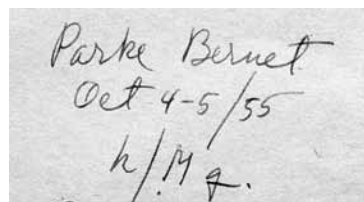 Parke Bernet
Oct 4-5/55